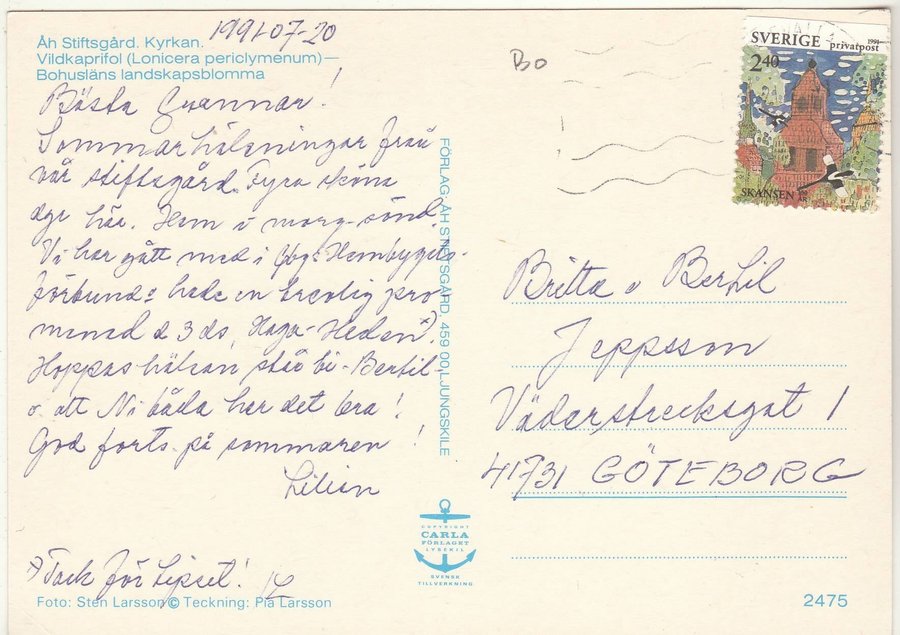 1991-07-20
Åh Stiftsgård. Kyrkan.
Vildkaprifol (Lonicera periclymenum)—
Bohusläns landskapsblomma
Bästa Grannar!
Sommarhälsningar från
vår stiftsgård. Fyra sköna
dgr här. Hem i morg-sönd.
Vi har gått med i Gbgs Hembygds-
förbund: hade en trevlig pro
menad d 3 ds, Haga-Heden x).
Hoppas hälsan står bi - Bertil -
o. att Ni båda har det bra!
God forts. på sommaren!
Lilian
x) Tack för tipset!
Foto: Sten Larsson © Teckning: Pia Larsson
FÖRLAG: ÅH STIFTSGÅRD, 459 00 LJUNGSKILE
COPYRIGHT
CARLA
FÖRLAGET
LYSEKIL
SVENSK
TILLVERKNING
BO
SVERIGE
1991
privatpost
2.40
SKANSEN 100 ÅR
Britta o Bertil
Jeppsson
Väderstrecksgat 1
41731 GÖTEBORG
2475